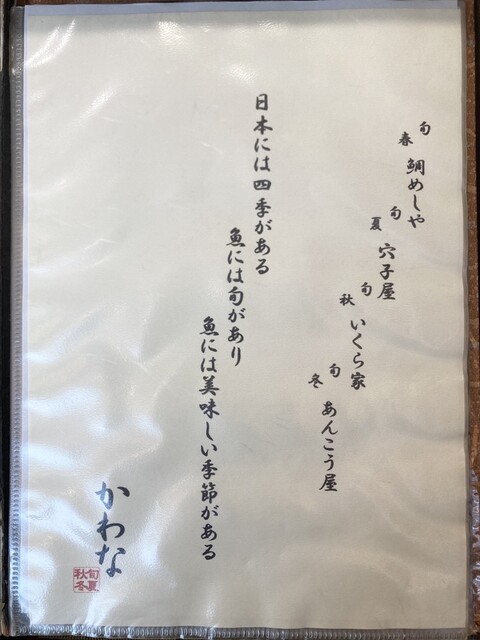 旬
春 鯛めしや
旬
夏 穴子屋
旬
秋 いくら家
旬
冬 あんこう屋
日本には四季がある
魚には旬があり
魚には美味しい季節がある
かわな
旬夏
秋冬